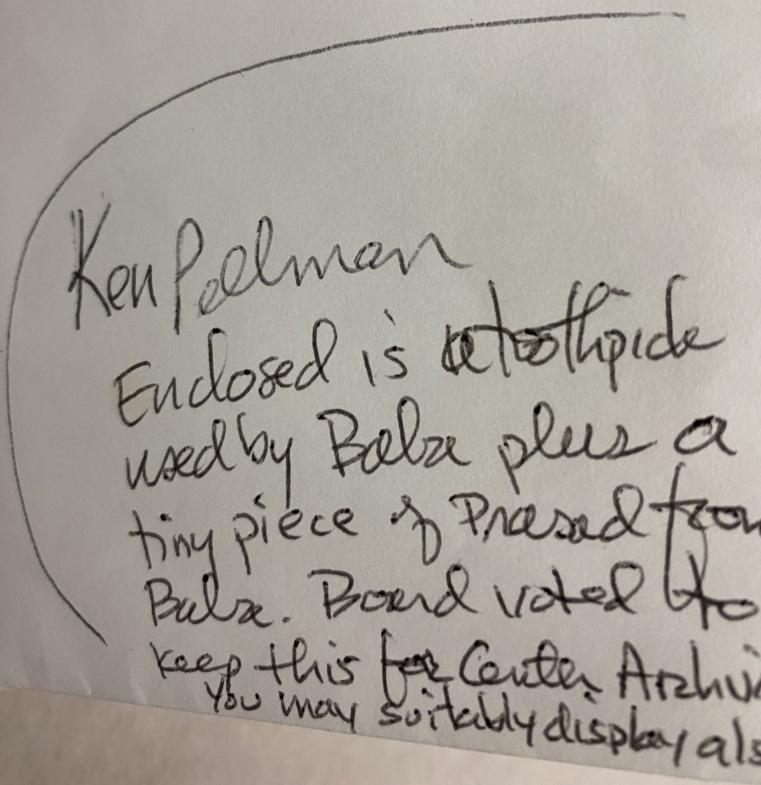 Ken Pellman
Enclosed is a toothpick
used by Baba plus a
tiny piece of Prasad from
Baba. Board voted to
keep this for Center Archi
You may suitably display als